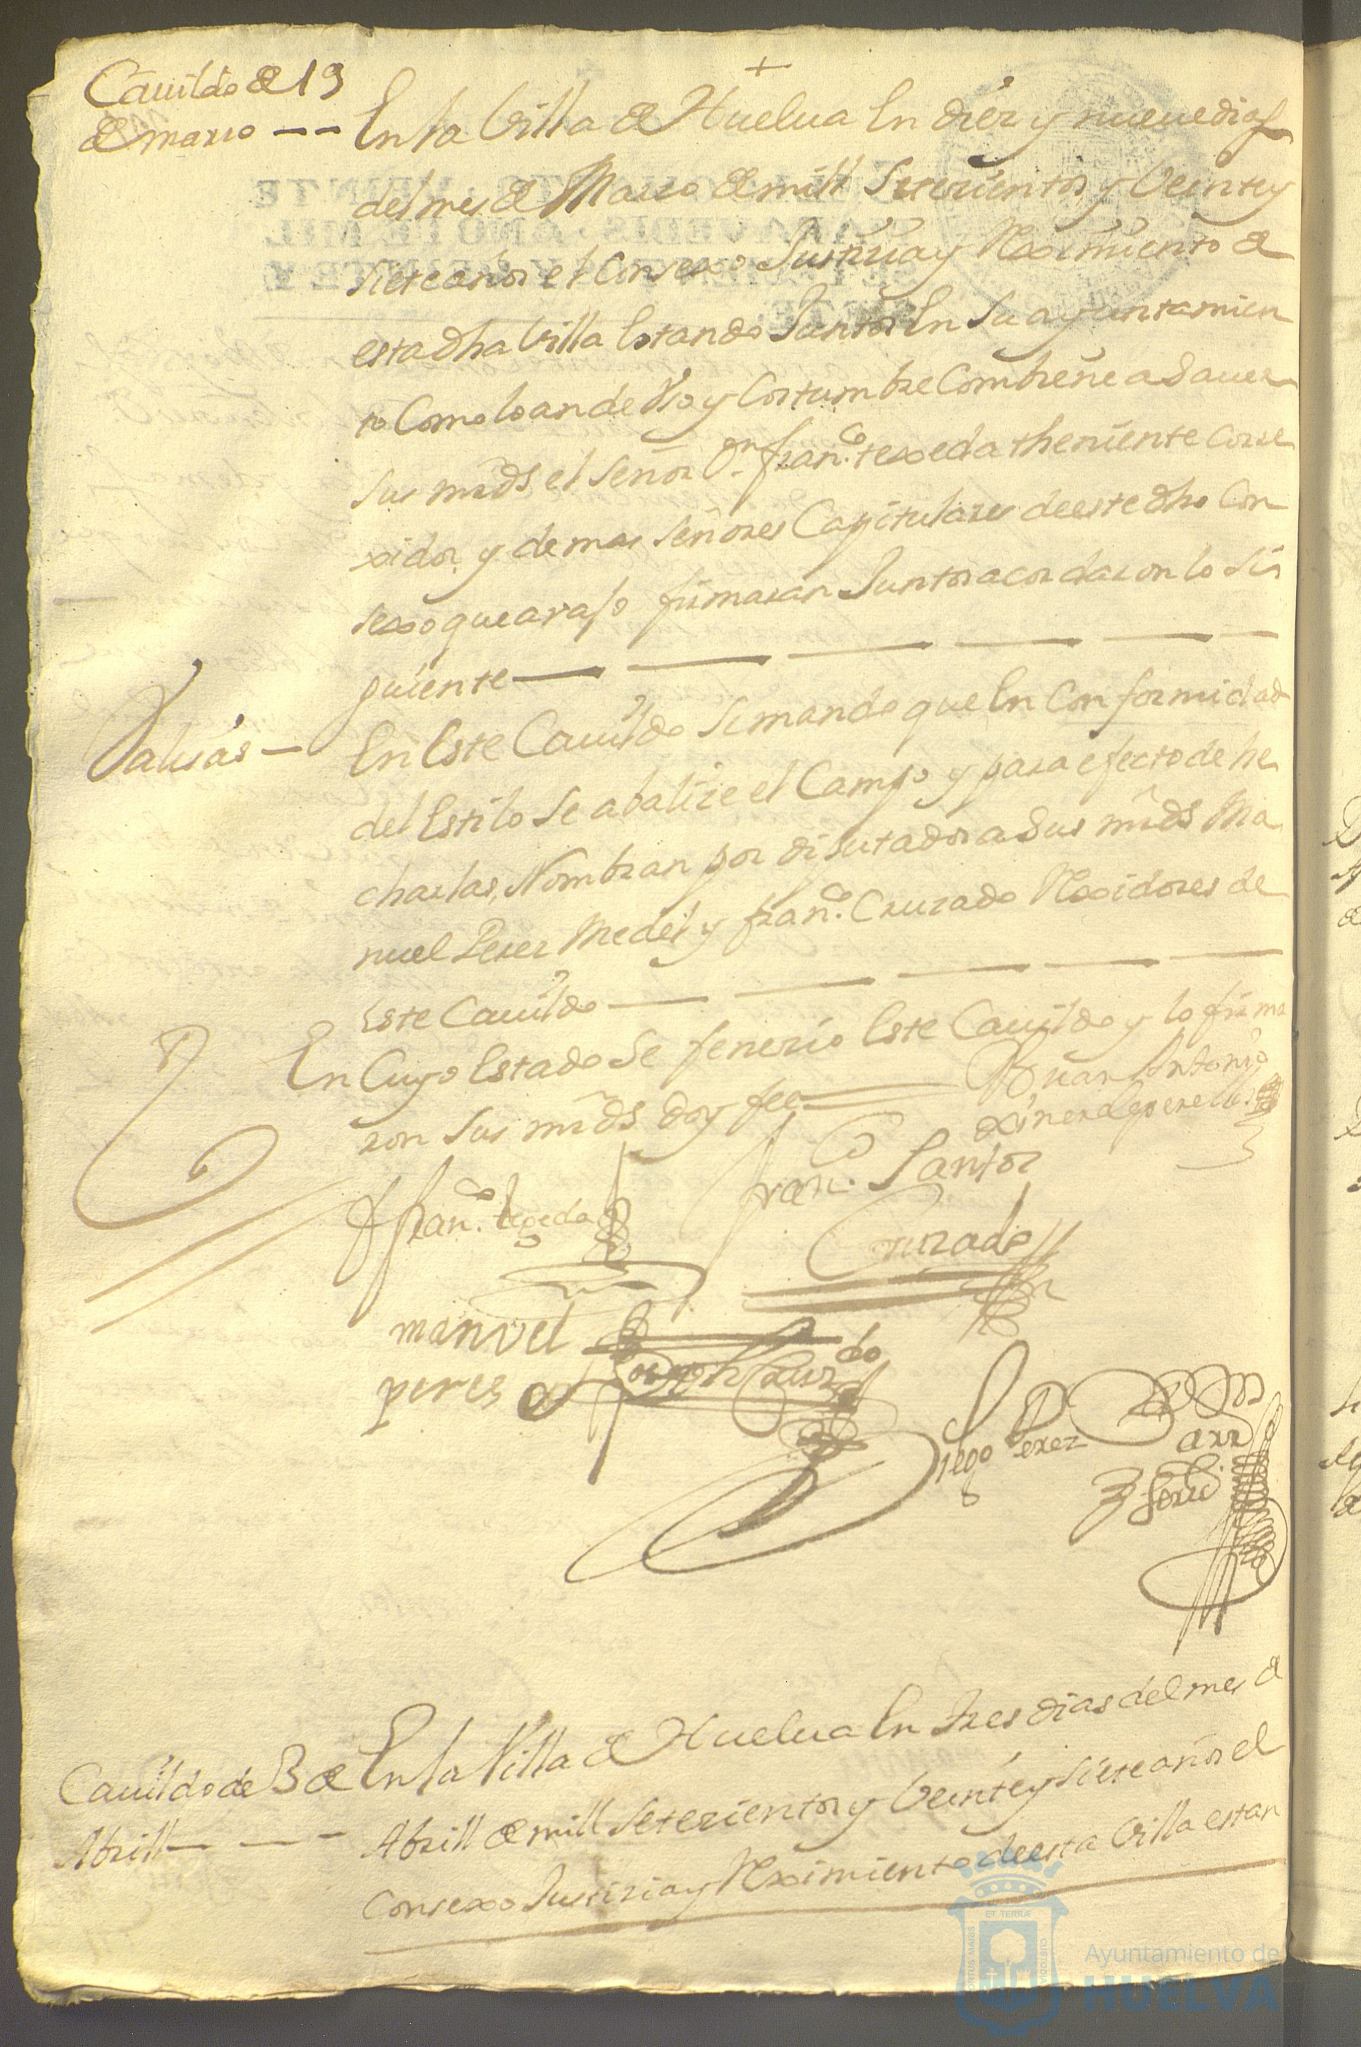 Cauildo de 19
de marzo - -
+
En la Villa de Huelua En diez y nueue dias
del mes de Marzo de mill Setezientos y Veinte y
siete años el Consexo Justizia y Reximiento de
esta dha Villa Estando Juntos En Su ayuntamien
to Como lo an de Vso y Costumbre Combiene a Sauer
sus mrds el señor Dn fran.co texeda theniente Corre
xidor y demas señores Capitulares de este dho Con
sexo que avaxo firmaran Juntos acordaron lo Si
guiente
Valisas -
En Este Cauildo Se mando que En Conformidad
del Estilo Se abalize el Campo y para efecto de he
charlas, Nombran por diputados a Sus mrds Ma
nuel Perez Medel y fran.co Cruzado Rexidores de
Este Cauildo
En Cuyo Estado Se fenezio Este Cauildo y lo firma
ron Sus mrds doy fee
Juan Antonio
fran.co texeda
fran.co Santos
Cruzado
manuel
peres
Diego Perez
Cauildo de 3 de
Abrill - - -
En la Villa de Huelua En tres dias del mes de
Abrill de mill Setezientos y Veinte y Siete años el
Consexo Justizia y Reximiento de esta Villa estan
Ayuntamiento de
HUELVA